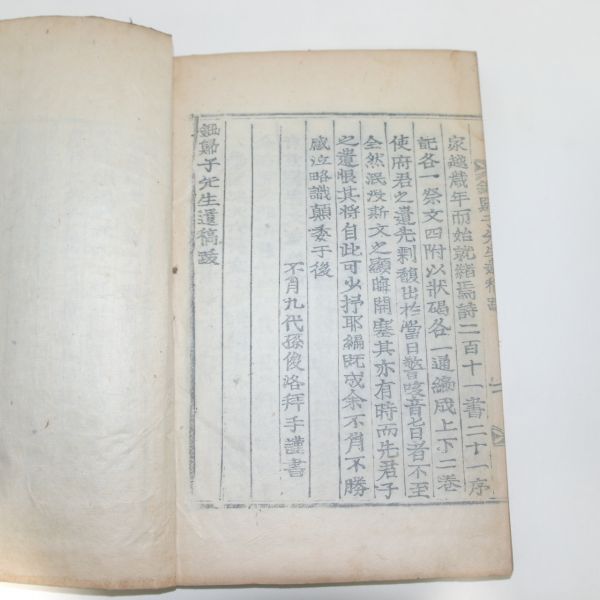 家越歲年而始就緖焉詩二百十一書二十一序
記各一祭文四附以狀碣各一通編成上下二卷
使府君之遺光剩馥出於當日謦咳音旨者不至
全然泯沒斯文之顯晦開塞其亦有時而先君子
之遺恨其將自此可少抒耶編旣成余不肖不勝
感泣略識顚委于後
不肖九代孫俊洛拜手謹書
歸子先生遺稿跋